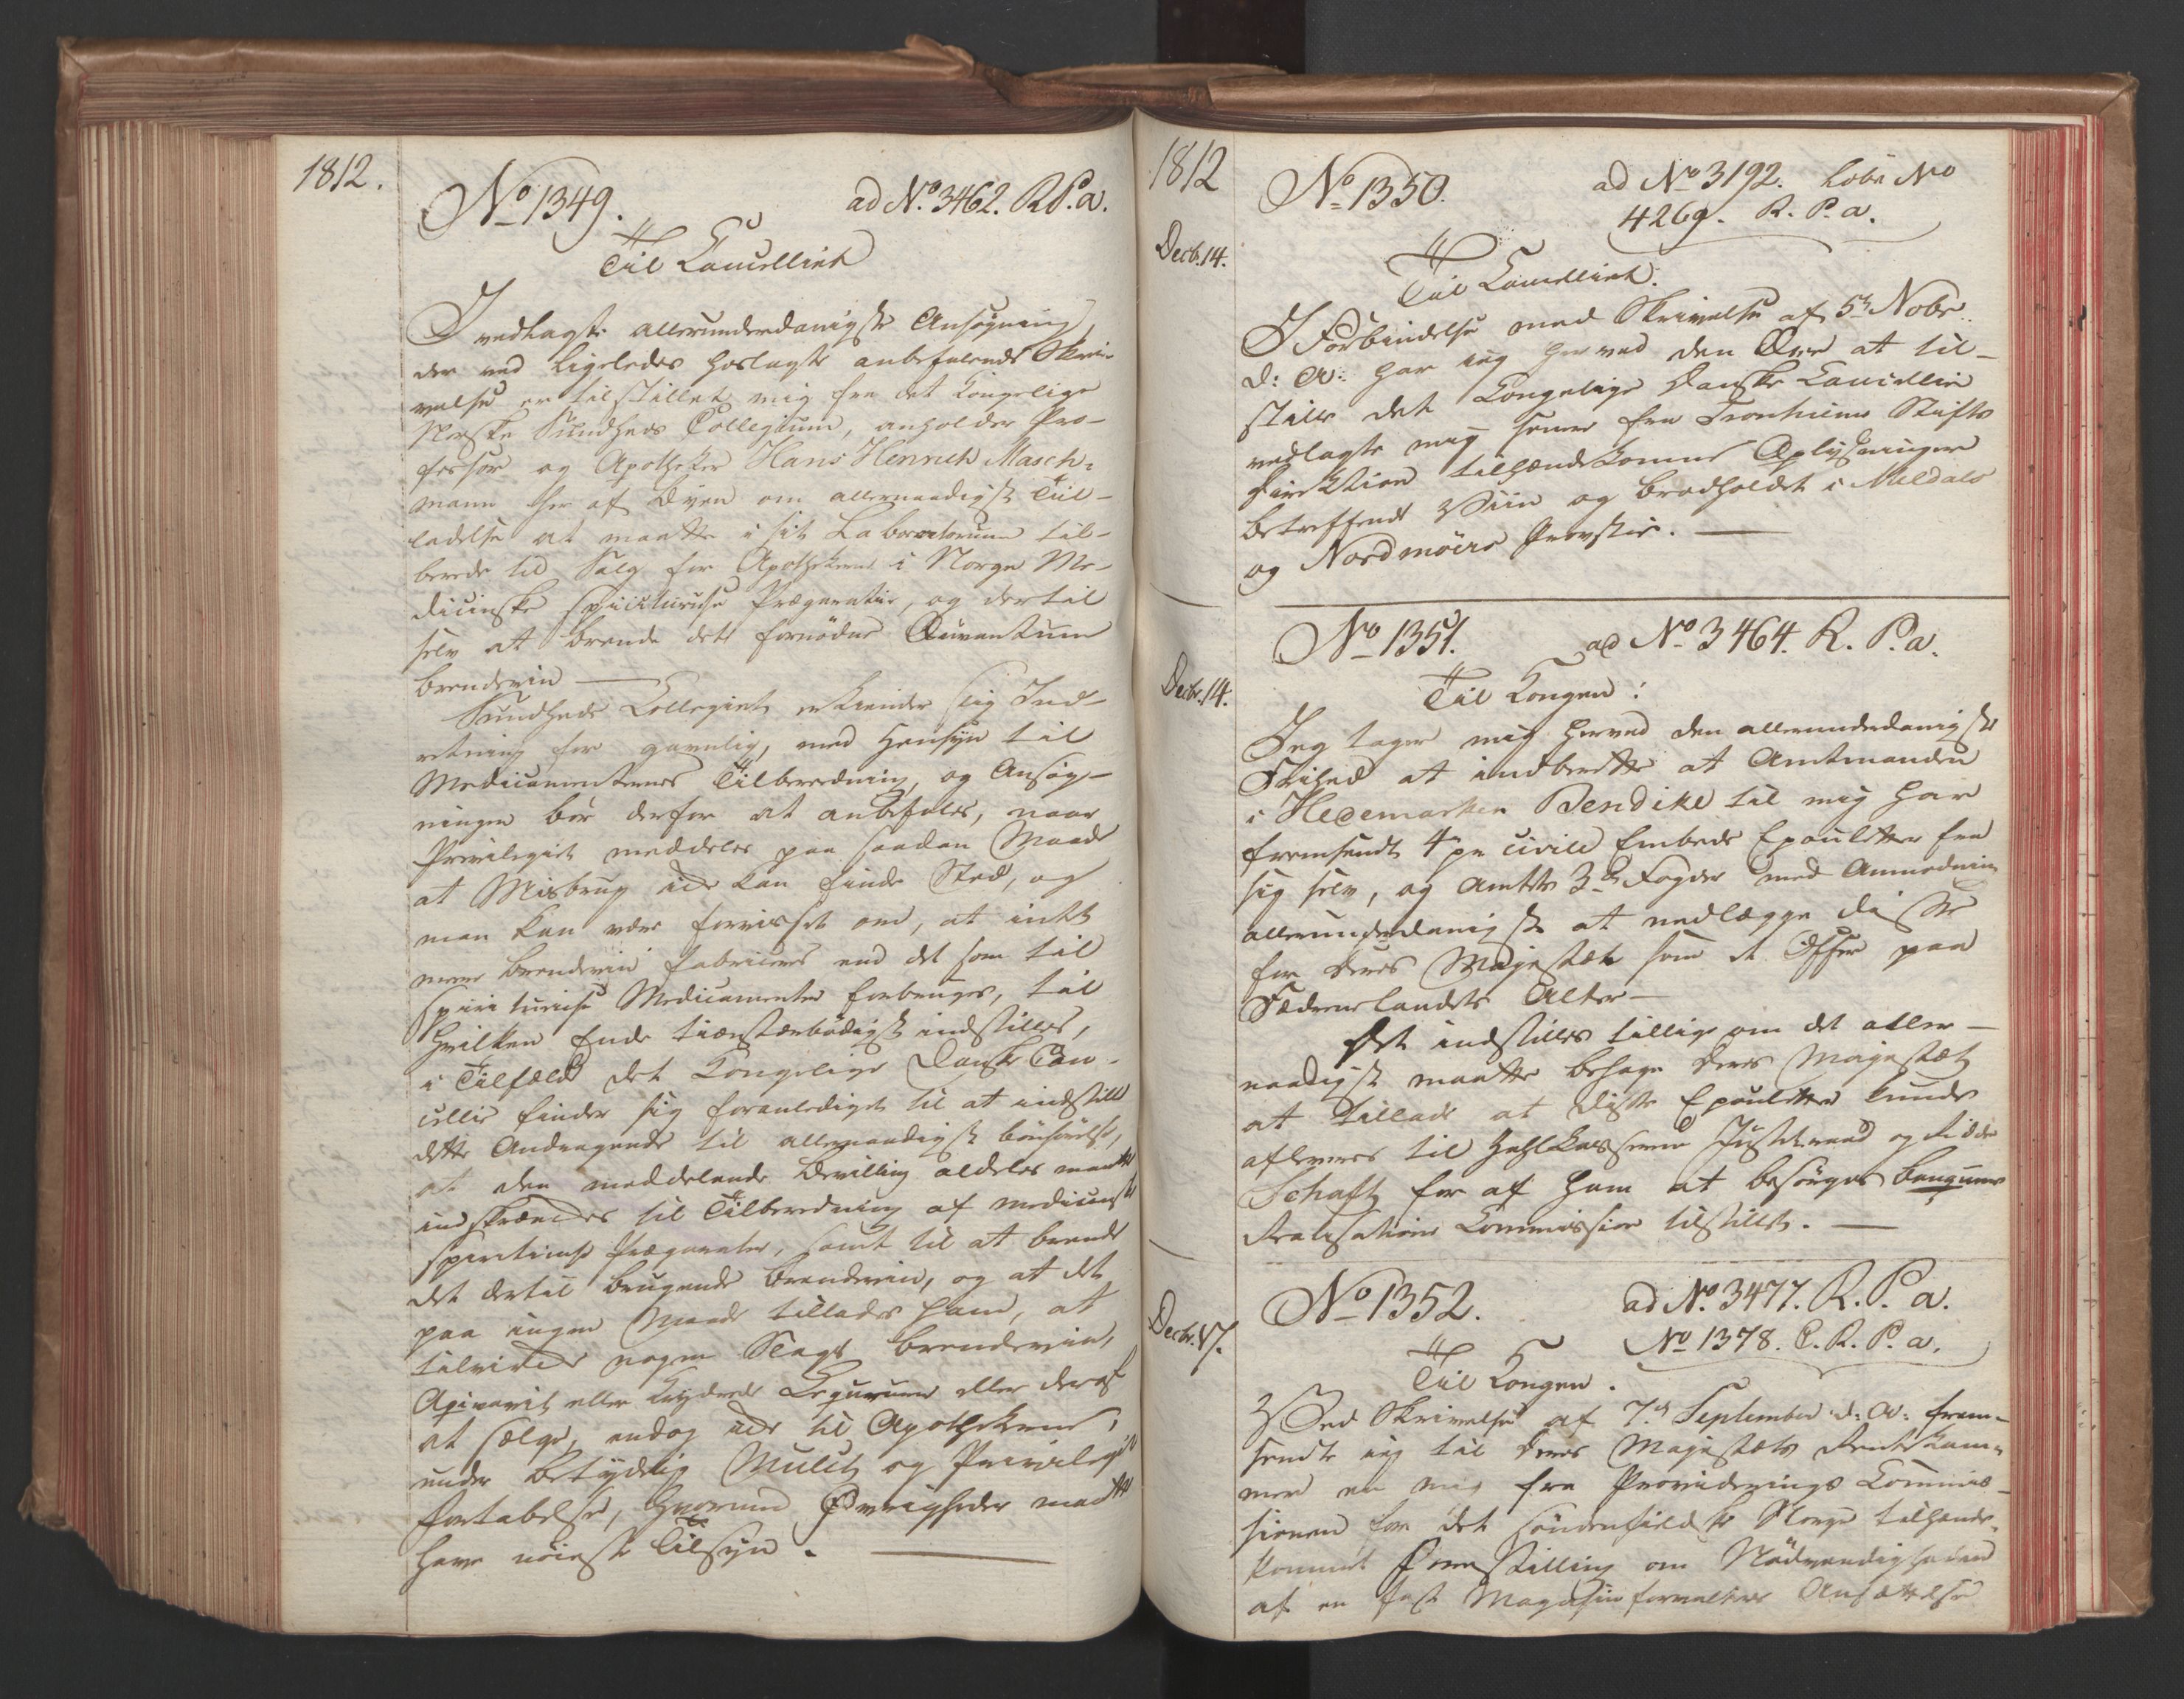 1812.
No 1349. ad No. 3462. R.P.a.
Til Cancelliet
I vedlagte allerunderdanigste Ansøgning,
der med ligeledes hoslagte anbefalende Skri-
velse er tilstillet mig fra det Kongelige
Norske Sundheds Collegium, anholder Pro-
fessor og Apotheker Hans Henrich Masch-
mann her af Byen om allernaadigst Til-
ladelse at maatte i sit Laboratorium til-
berede til Salg for Apothekerne i Norge Me-
dicinske spirituøse Præparater, og dertil
selv at brende det fornødne Qvantum
brendeviin —
Sundheds Collegiet erkiender slig Ind-
retning for gavnlig, med Hensyn til
Medicamenternes Tilberedning, og Ansøg-
ningen bør derfor at anbefales, naar
Privilegiet meddeles paa saadan Maade
at Misbrug ikke kan finde Sted, og
man kan være forvisset om, at intet
mere brendeviin fabriceres end det som til
spirituøse Medicamenter forbruges, til
hvilken Ende tienstærbødigst indstilles,
i Tilfælde det Kongelige Danske Can-
cellie finder sig foranlediget til at indstille
dette Andragende til allernaadigst bønhørelse,
at den meddelende Bevilling aldeles maatte
indskrænkes til Tilberedning af medicinske
spirituose Præparater, samt til at brende
det dertil brugende brendeviin, og at det
paa ingen Maade tillades ham, at
tilvirke nogen Slags brendeviin,
Aqvavit eller krydrede Liqueurer eller deraf
at sælge, endog ikke til Apothekerne,
under betydelig Mulct og Privilegiets
Fortabelse, hvormed Øvrigheden maatte
have nøieste Tilsyn. —
1812
Decb. 14.
No 1350. ad No 3192. Løbe No
4269. R. P. a.
Til Cancelliet.
I Forbindelse med Skrivelse af 5te Novbr
d: A: har ieg herved den Ære at til-
stille det Kongelige Danske Cancellie
vedlagte mig senere fra Tronhiems Stifts
Direktion tilhændekomne Oplysninger
betreffende Viin og brødholdet i Meldals
og Nordmøers Provstie. —
Decbr. 14.
No 1351. ad No 3464. R. P. a.
Til Kongen:
Jeg tager mig herved den allerunderdanigste
Frihed at indberette at Amtmanden
i Hedemarken Bendike til mig har
fremsendt 4 pr civile Embeds Epauletter fra
sig selv, og Amtets 3de Fogder med Anmodning
allerunderdanigst at nedlægge disse
for Deres Majestæt som et Offer paa
Fædrenelandets Alter —
Det indstilles tillige om det aller-
naadigst maatte behage Deres Majestæt
at tillade at disse Epauletter kunde
afleveres til Zahlkasserer Justitsraad og Ridder
Schaft for af ham at besørges
Realisations Commission tilstillet. —
Decbr. 17.
No 1352. ad No. 3477. R. P. a.
No 1378. C. R. P. a.
Til Kongen.
Ved Skrivelse af 7de September d: A: frem-
sendte ieg til Deres Majestæts Rentekam-
mer en mig fra Provideerings Commis-
sionen for det søndenfieldske Norge tilhænde-
kommet Forestilling om Nødvendigheden
af en fast Magasinforvalters Ansættelse